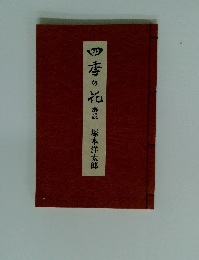 四季の花
解説 塚本洋太郎